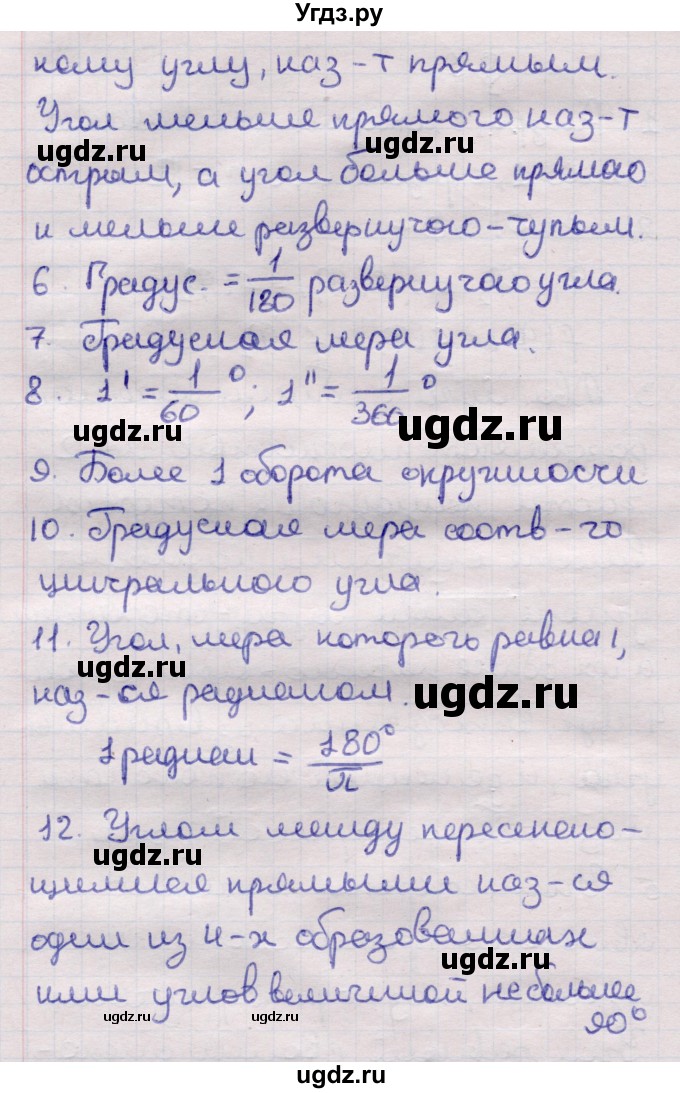 Угдз.ру
ному углу, наз-т прямым.
Угол меньше прямого наз-т
ugdz.ru ugdz.ru
острым, а угол больше прямао
и меньше развернутого-тупым.
ugdz.ru ugdz.ru
6. Градус. = 1/180 развернутого угла.
7. Градусная мера угла.
ugdz.ru ugdz.ru
8. 1' = 1/60 °; 1" = 1/360 °
ugdz.ru ugdz.ru
9. Более 1 оборота окружности
10. Градусная мера соотв-го
ugdz.ru ugdz.ru
центрального угла.
11. Угол, мера которого равна 1,
ugdz.ru
наз-ся радианом.
ugdz.ru
1 радиан = 180°/π
12. Углом между пересекаю-
ugdz.ru ugdz.ru
щимися прямыми наз-ся
один из 4-х образованных
ugdz.ru ugdz.ru
ими углов величиной не больше
90°
ugdz.ru ugdz.ru
ugdz.ru